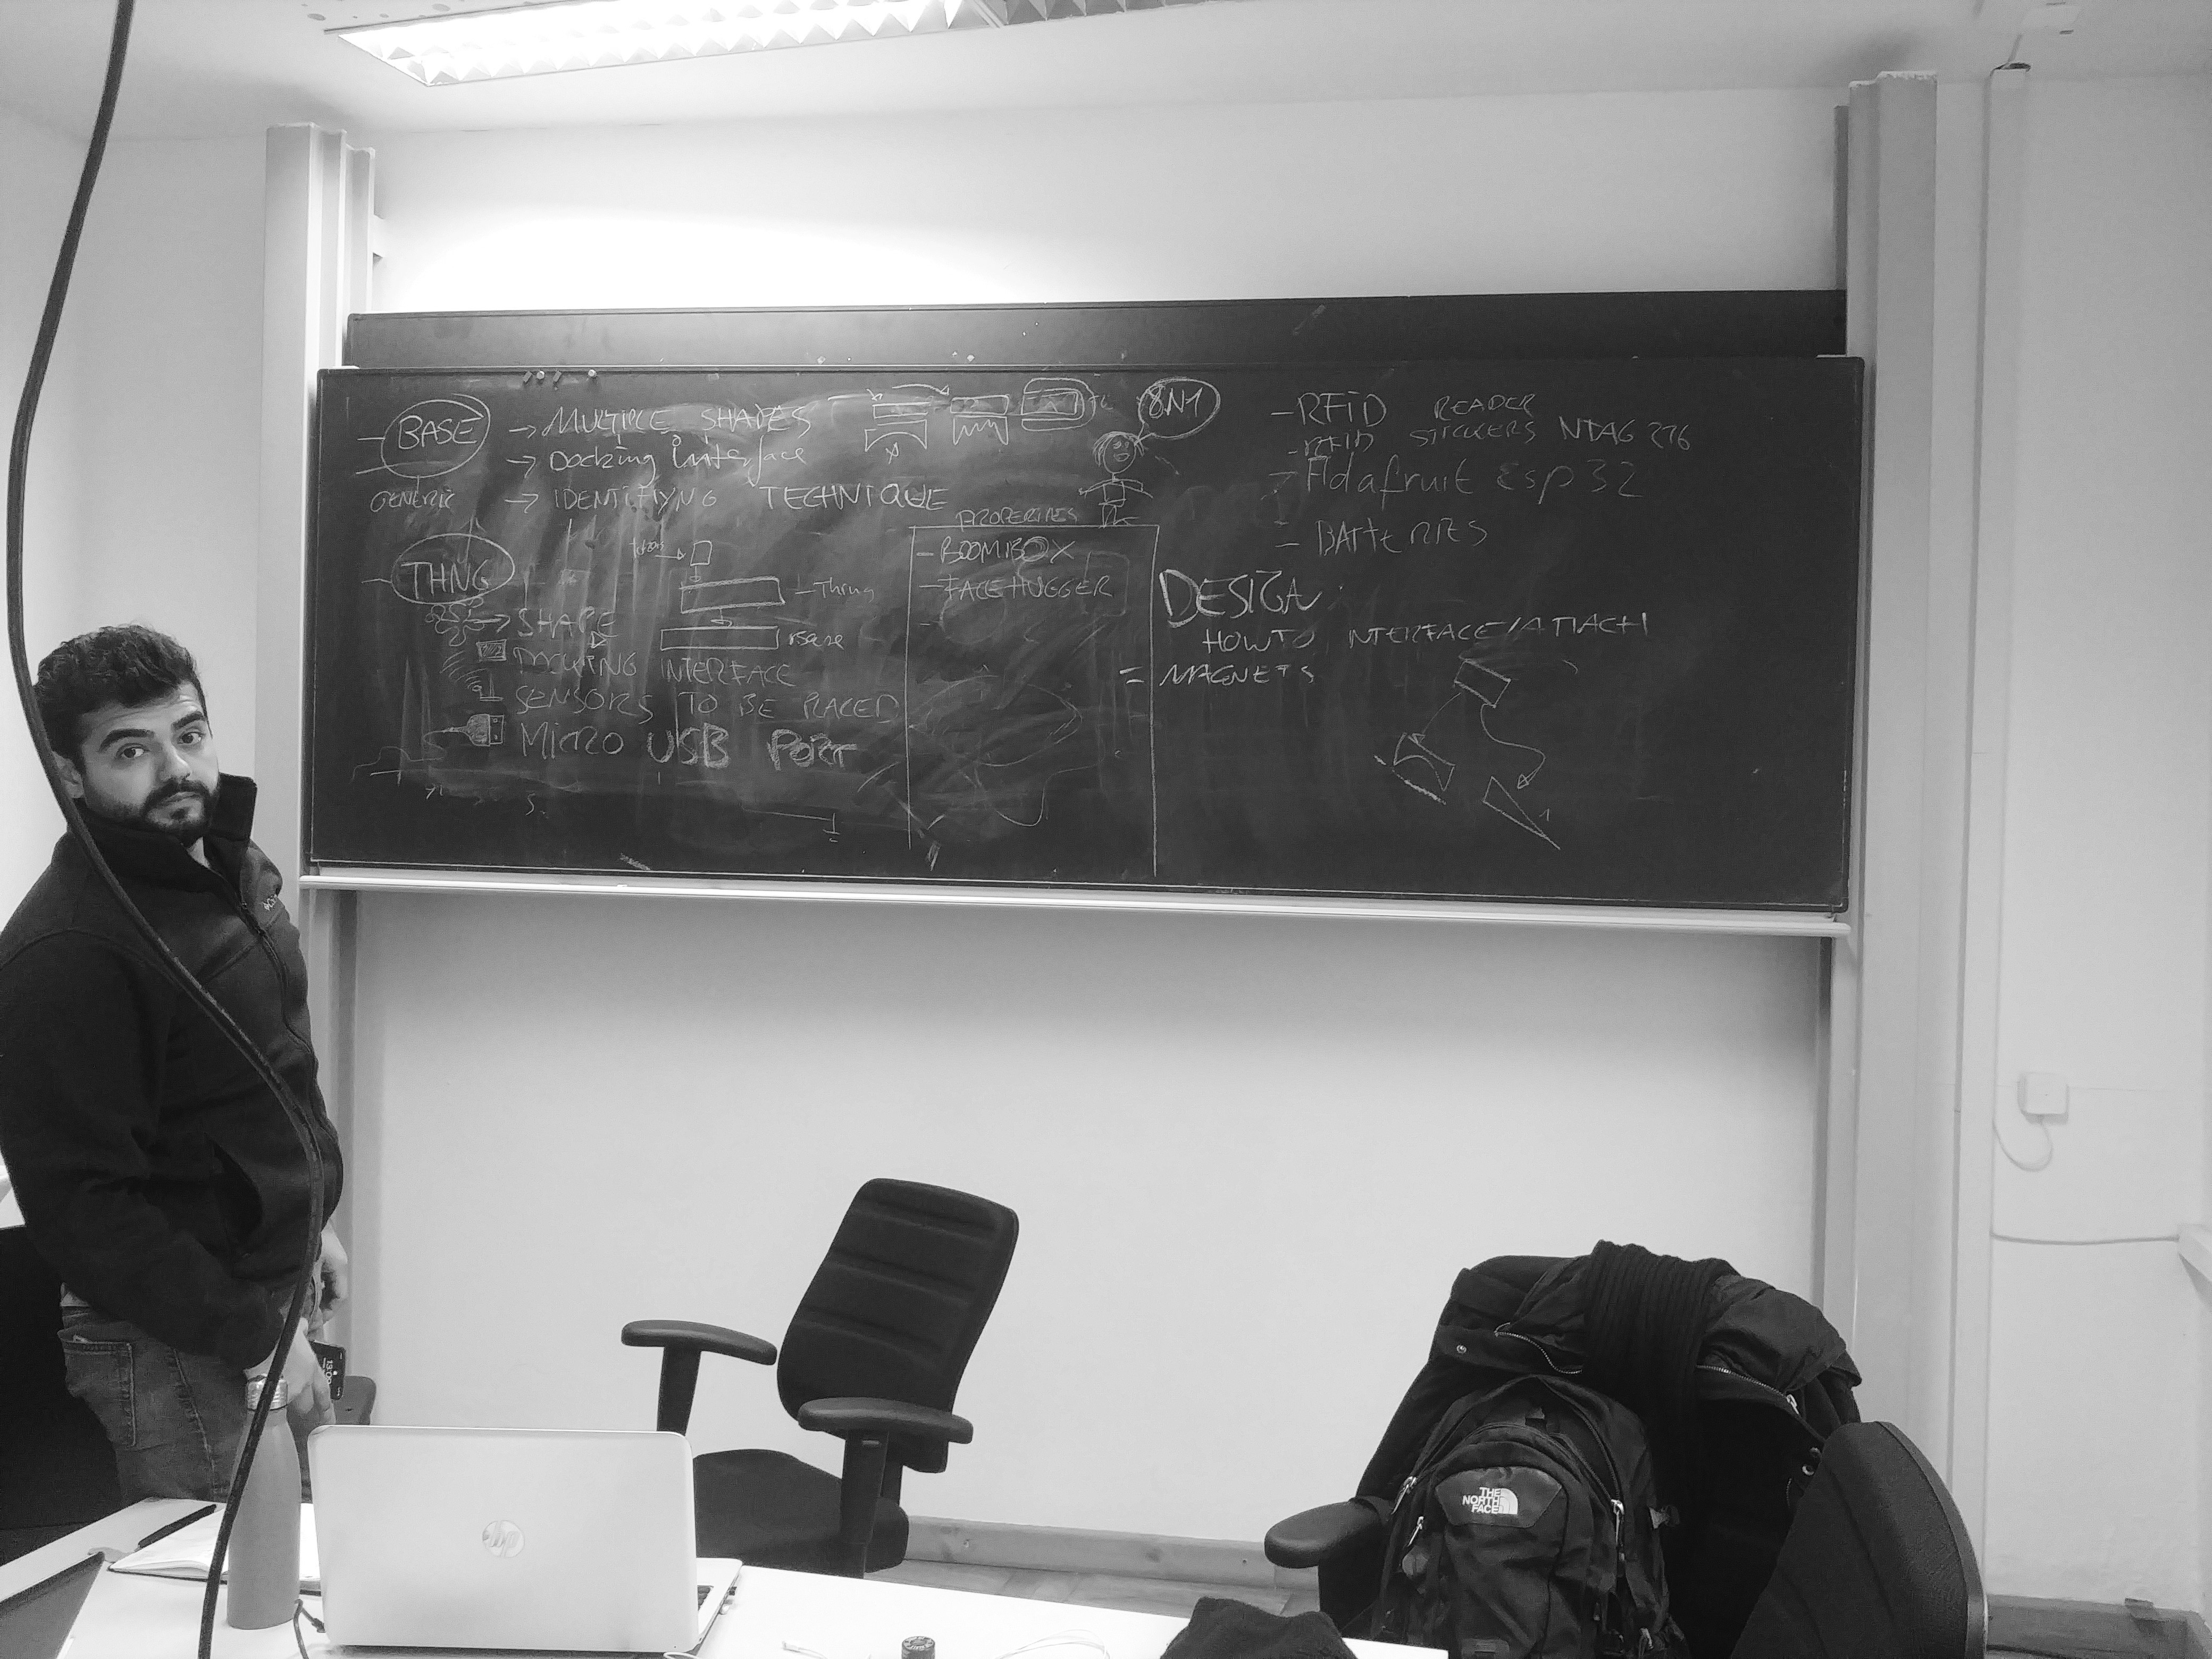 BASE
GENERIC
→ MULTIPLE SHAPES
→ Docking interface
→ IDENTIFIYNG TECHNIQUE
8N1
THNG
→ SHAPE
DOCKING INTERFACE
SENSORS TO BE PLACED
MICRO USB PORT
Thing
Base
PROPERTIES
- BOOMBOX
- FACEHUGGER
- RFID READER
- RFID STICKERS NTAG 216
- Adafruit Esp32
- BATTERIES
DESIGN:
HOW TO INTERFACE/ATTACH
= MAGNETS
hp
THE
NORTH
FACE